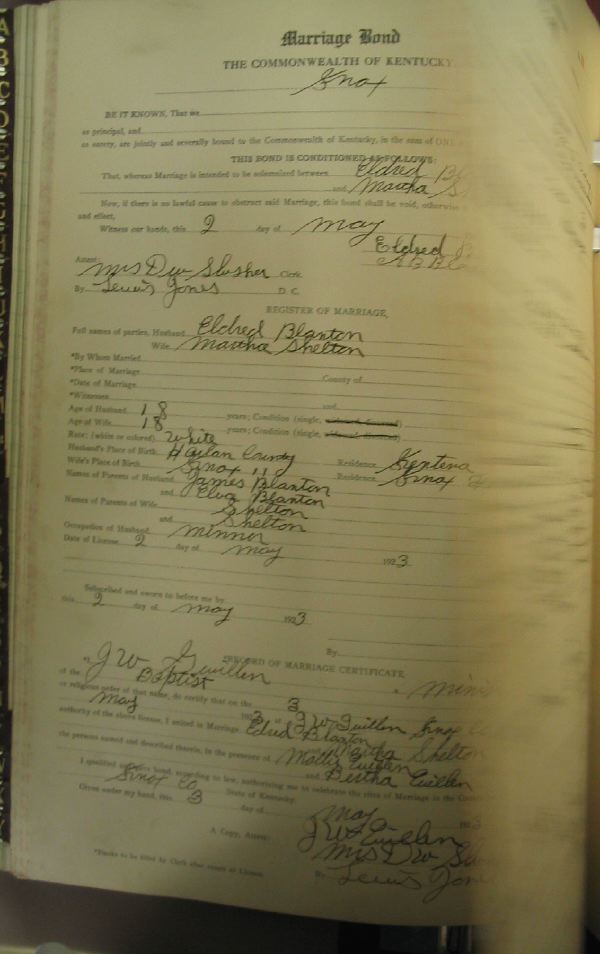 Marriage Bond
THE COMMONWEALTH OF KENTUCKY
Knox
BE IT KNOWN, That we
as principal, and
as surety, are jointly and severally bound to the Commonwealth of Kentucky, in the sum of ONE
THIS BOND IS CONDITIONED AS FOLLOWS:
That, whereas Marriage is intended to be solemnized between Eldred Bl
and Martha S
Now, if there is no lawful cause to obstruct said Marriage, this bond shall be void, otherwise
and effect,
Witness our hands, this 2 day of May
Eldred B
Attest:
Mrs D W Slusher Clerk.
By Lewis Jones D. C.
REGISTER OF MARRIAGE,
Full names of parties, Husband Eldred Blanton
Wife Martha Shelton
*By Whom Married
*Place of Marriage County of
*Date of Marriage
*Witnesses and
Age of Husband 18 years; Condition (single, widowed, divorced)
Age of Wife 18 years; Condition (single, widowed, divorced)
Race: (white or colored) White
Husband's Place of Birth Harlan County Residence
Wife's Place of Birth Knox " Residence Knox
Names of Parents of Husband James Blanton
and Elva Blanton
Names of Parents of Wife Shelton
and Shelton
Occupation of Husband minnor
Date of License 2 day of May 1923
Subscribed and sworn to before me by
this 2 day of May 1923
By
RECORD OF MARRIAGE CERTIFICATE,
I, J W Guillen a mini
of the Baptist
or religious order of that name, do certify that on the 3
May 1923 at J W Guillen Knox Co
authority of the above license, I united in Marriage Edred Blanton
and Martha Shelton
the persons named and described therein, in the presence of Mollie Guillen
and Bertha Guillen
I qualified and gave bond, according to law, authorizing me to celebrate the rites of Marriage in the County
Knox Co State of Kentucky.
Given under my hand, this 3 day of May 1923
J W Guillen
A Copy, Attest: Mrs D W Slu
By Lewis Jon
*Blanks to be filled by Clerk after return of License.